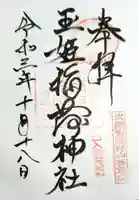 奉拝
玉姫稲荷神社
令和三年十月十八日